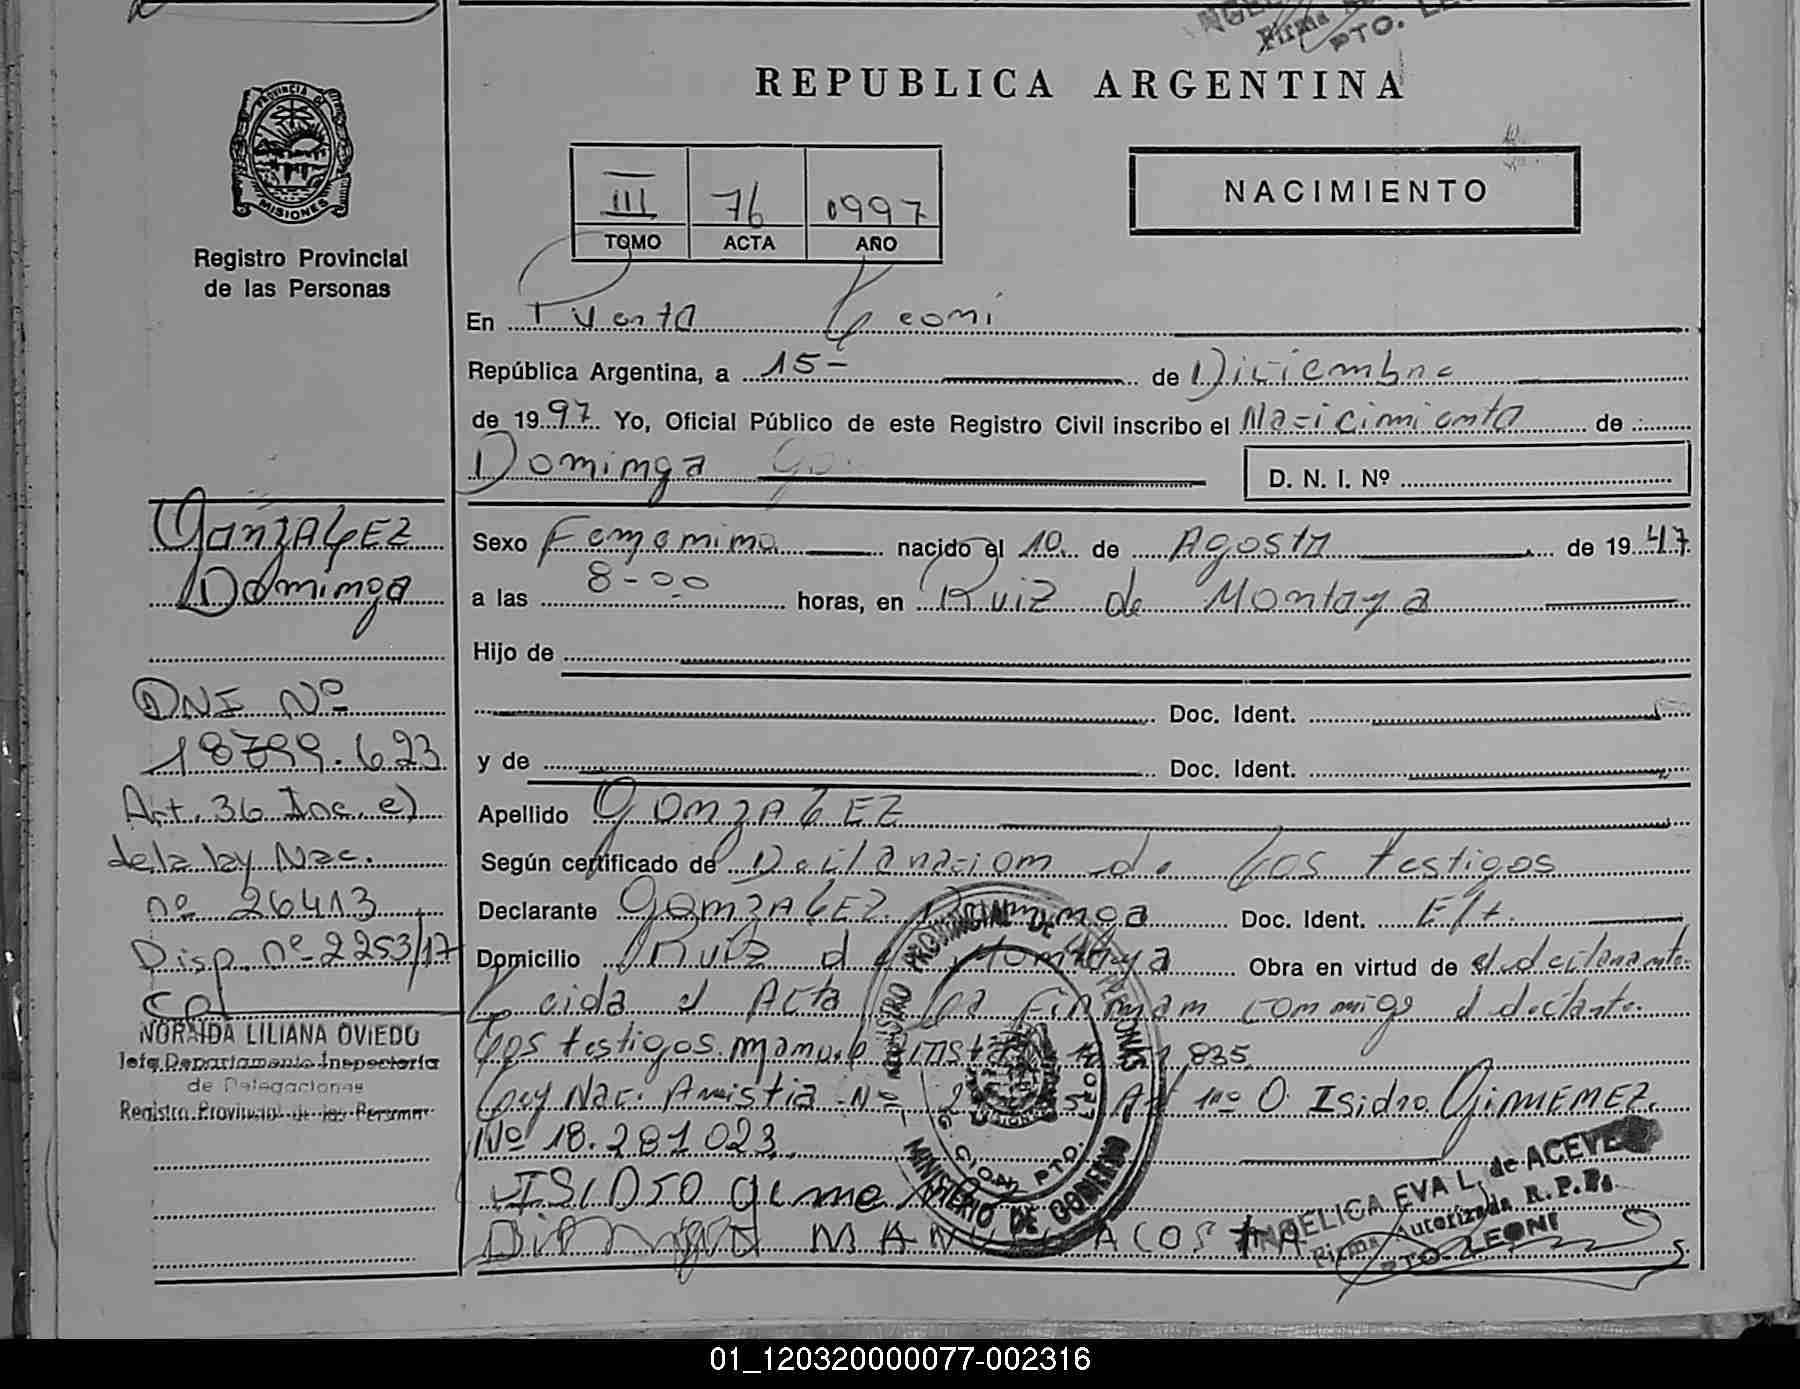 PTO.
REPUBLICA ARGENTINA
PROVINCIA D
MISIONES
Registro Provincial
de las Personas
III 76 1997
TOMO ACTA AÑO
NACIMIENTO
En Puerto Leoni
República Argentina, a 15- de Diciembre
de 1997 Yo, Oficial Público de este Registro Civil inscribo el Nacicimiento de
Dominga
D. N. I. Nº
GonzALEZ
Dominga
DNI Nº
18799.623
Art. 36 Inc. e)
de la ley Nac.
nº 26413
Disp. nº 2253/17
NORAIDA LILIANA OVIEDO
Jefa Departamento Inspectoría
de Delegaciones
Registro Provincial de las Personas
Sexo Femenino nacido el 10 de Agosto de 1947
a las 8-00 horas, en Ruiz de Montoya
Hijo de
Doc. Ident.
y de Doc. Ident.
Apellido GonzALEZ
Según certificado de Declaracion de Los testigos
Declarante GonzALEZ Dominga Doc. Ident.
Domicilio Ruiz de Montoya Obra en virtud de el declarante
Leida el Acta La Firman conmigo el
Los testigos 835
Ley Nac. Amistia Nº Art 1º O. Isidro GiMEMEZ
Nº 18.281.023
ISIDrO Gimenez
MANUEL ACOSTA
REGISTRO PROVINCIAL DE LAS PERSONAS
MINISTERIO DE GOBIERNO
PTO. LEONI
ANGELICA EVA L. de ACEVEDO
Firma Autorizada R.P.P.
PTO. LEONI
01_120320000077-002316